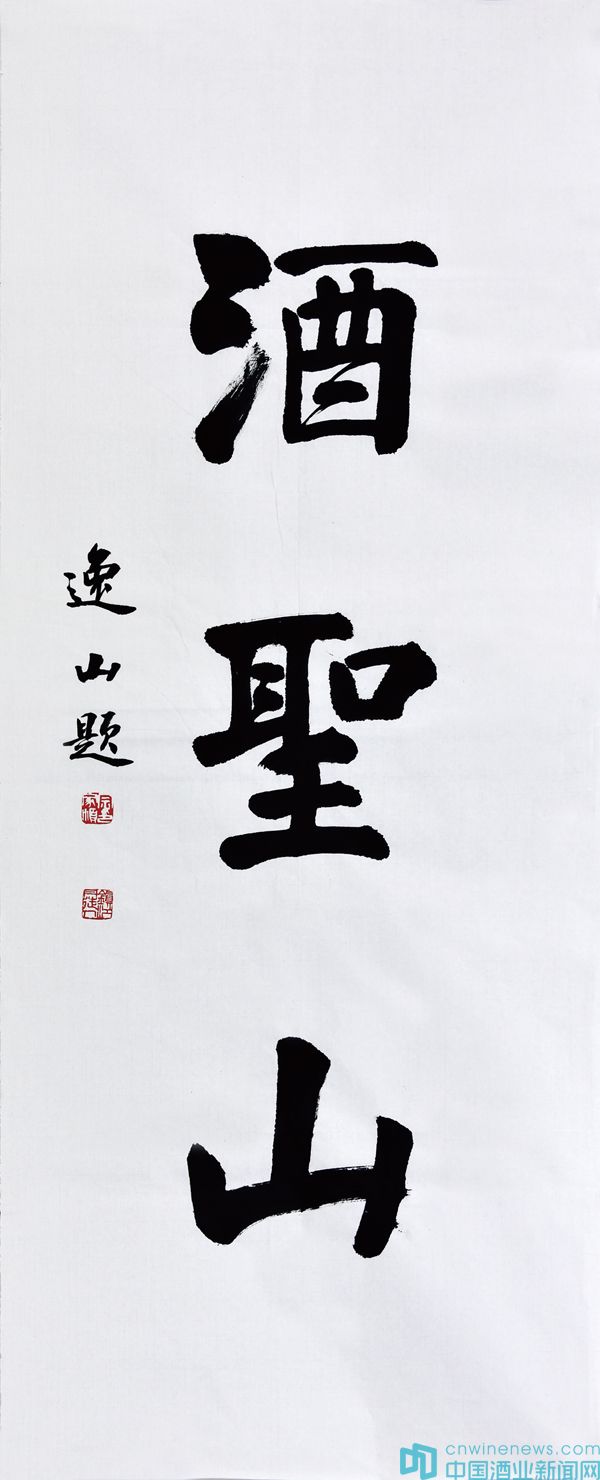 酒聖山
逸山题
cnwinenews.com
中国酒业新闻网